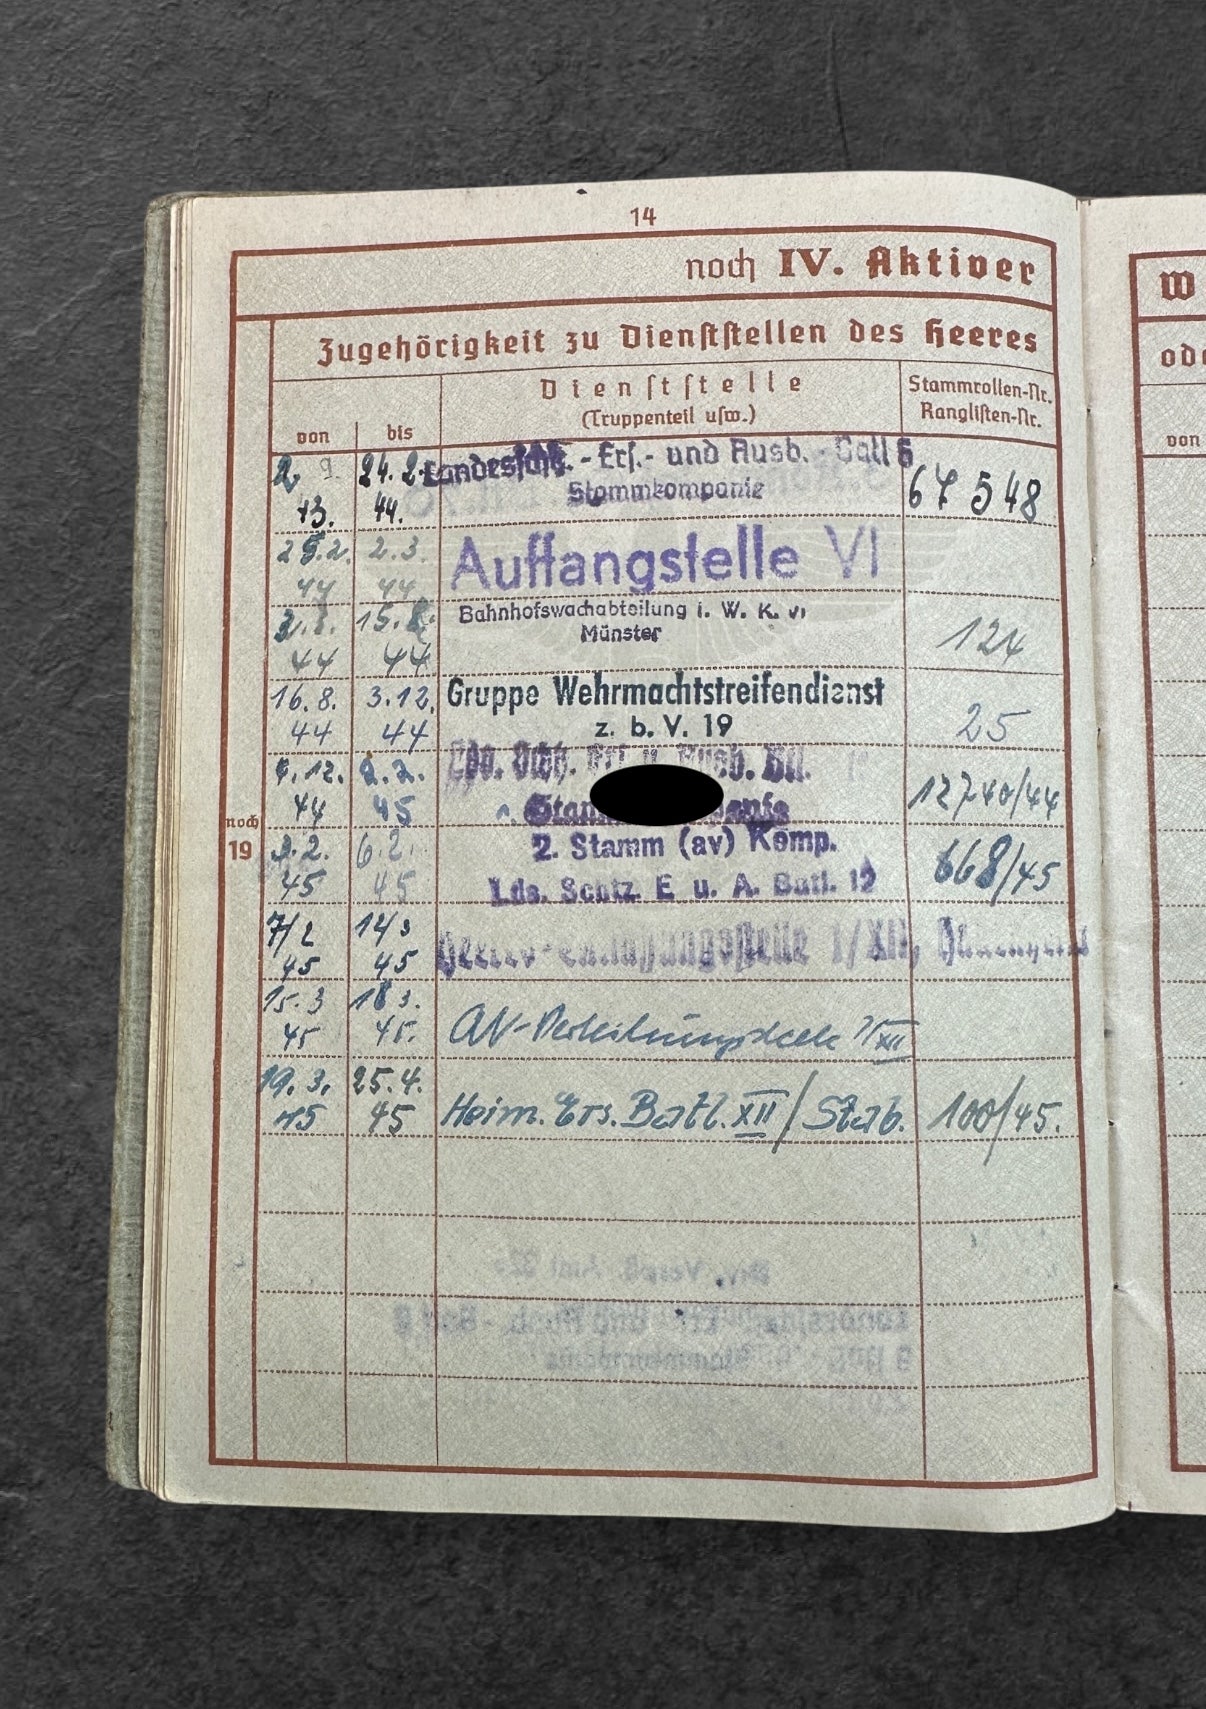 14
noch IV. Aktiver
W
Zugehörigkeit zu Dienststellen des Heeres
ode
von
bis
Dienststelle
(Truppenteil usw.)
Stammrollen-Nr.
Ranglisten-Nr.
von
2. 9. 43.
24. 2. 44.
Landesschtz. - Ers.- und Ausb. - Batl 6
Stammkompanie
67 548
25.2. 44
2.3. 44
Auffangstelle VI
3.3. 44
15.8. 44
Bahnhofswachabteilung i. W. K. VI
Münster
124
16.8. 44
3.12. 44
Gruppe Wehrmachtstreifendienst
z. b. V. 19
25
4.12. 44
2.2. 45
Lds. Schtz. Ers. u. Ausb. Btl.
12740/44
noch
19
3.2. 45
6.2. 45
2. Stamm (av) Komp.
Lds. Schtz. E u. A. Batl. 12
668/45
7/2 45
14/3 45
Heeres-Entlassungsstelle 1/XII,
15.3 45
18 3. 45.
AV- XII
19. 3. 45
25. 4. 45
Heim. Ers. Batl. XII / Stab.
100/45.